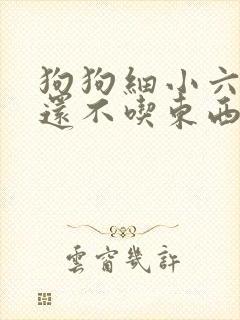 狗狗細小六
還不喫東西
雲窗幾許